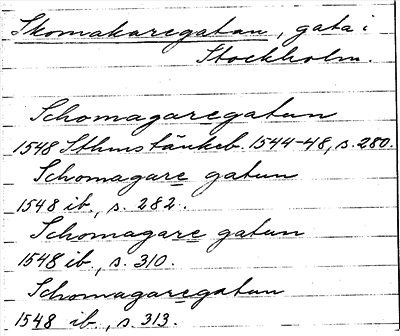 Skomakaregatan, gata i
Stockholm.
Schomagaregatun
1548 Sthms tänkeb. 1544-48, s. 280.
Schomagare gatun
1548 ib., s. 282.
Schomagare gatun
1548 ib., s. 310.
Schomagaregatun
1548 ib., s. 313.